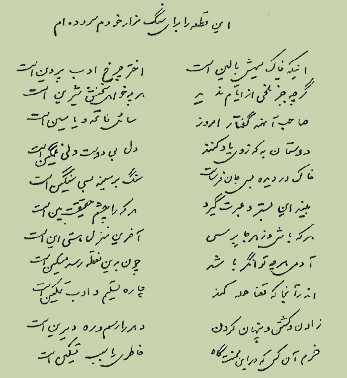 این قطعه را برای سنگ مزار خودم سروده ام
اینکه خاک سیهش بالین است اختر چرخ ادب پروین است
گر چه جز تلخی از ایام ندید هر چه خواهی سخنش شیرین است
صاحب آنهمه گفتار امروز سائل فاتحه و یاسین است
دوستان به که ز وی یاد کنند دل بی دوست دلی غمگین است
خاک در دیده بسی جان فرساست سنگ بر سینه بسی سنگین است
بیند این بستر و عبرت گیرد هر که را چشم حقیقت بین است
هر که باشی و ز هر جا برسی آخرین منزل هستی این است
آدمی هر چه توانگر باشد چون بدین نقطه رسد مسکین است
اندر آنجا که قضا حمله کند چاره تسلیم و ادب تمکین است
زادن و کشتن و پنهان کردن دهر را رسم و ره دیرین است
خرم آن کس که در این محنت گاه خاطری را سبب تسکین است